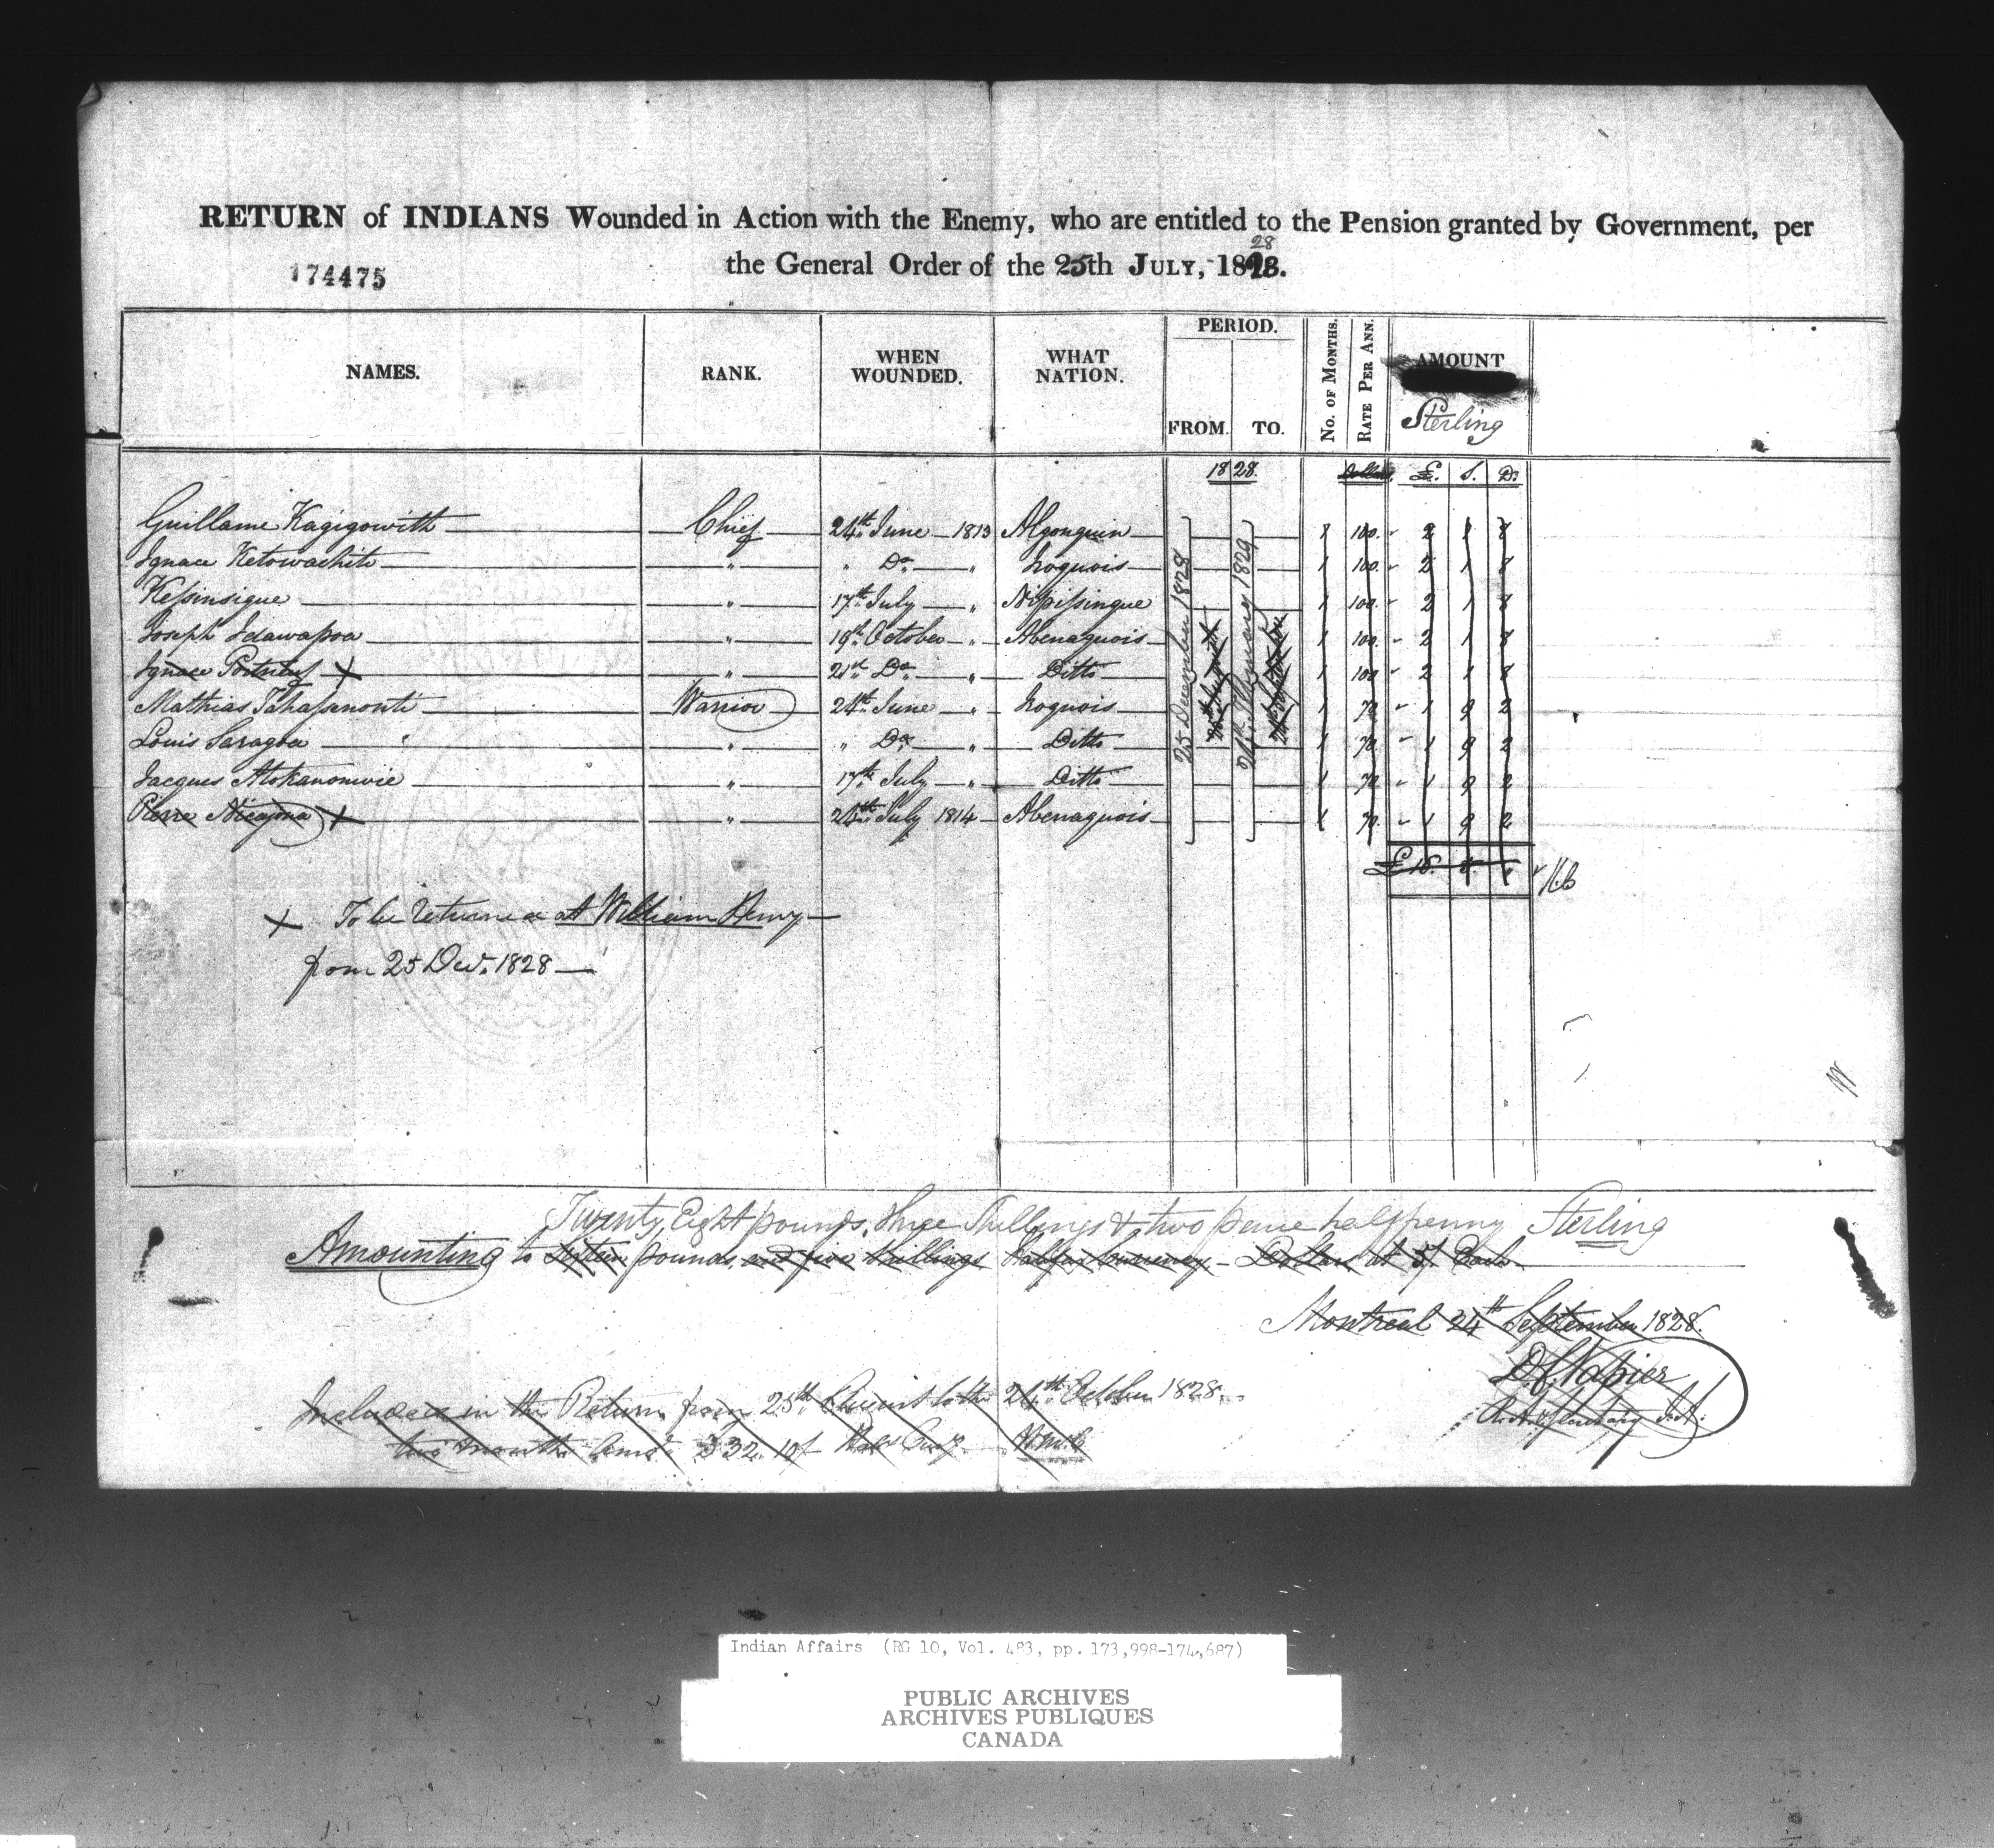 RETURN of INDIANS Wounded in Action with the Enemy, who are entitled to the Pension granted by Government, per
the General Order of the 25th JULY, 1828.
28
174475
NAMES. RANK. WHEN WOUNDED. WHAT NATION. PERIOD. FROM. TO. No. OF MONTHS. RATE PER ANN. AMOUNT Sterling
1828. Dollars. £. S. D.
Guillame Kagigowith Chief 24th June 1813 Algonquin 1 100. 2 1 8
Ignace Ketowachite " " Do " Iroquois 1 100. 2 1 8
Kessinsigue " 17th July " Nipissingue 1 100. 2 1 8
Joseph " 19th October " Abenaquois 1 100. 2 1 8
Ignace Portneuf X " 21st Do " Ditto 1 100. 2 1 8
Mathias Warrior 24th June " Iroquois 1 70. 1 9 2
Louis Saragoa " " Do " Ditto 1 70. 1 9 2
Jacques " 17th July " Ditto 1 70. 1 9 2
Pierre X " July 1814 Abenaquois 1 70. 1 9 2
25 December 1828
25th August
1829
24 September
£16. 5. "
X To be returned at William Henry
from 25 Decr. 1828
Twenty Eight pounds, three Shillings & two pence halfpenny Sterling
Amounting to Sixteen pounds, and five Shillings Halifax Currency - Dollars at 5/ Each
Montreal 24th September 1828.
D. C. Napier
Secretary I.A.
Included in the Return from 25th August to the 24th October 1828
two months £32.10/
Indian Affairs (RG 10, Vol. 483, pp. 173,998-174,687)
PUBLIC ARCHIVES
ARCHIVES PUBLIQUES
CANADA